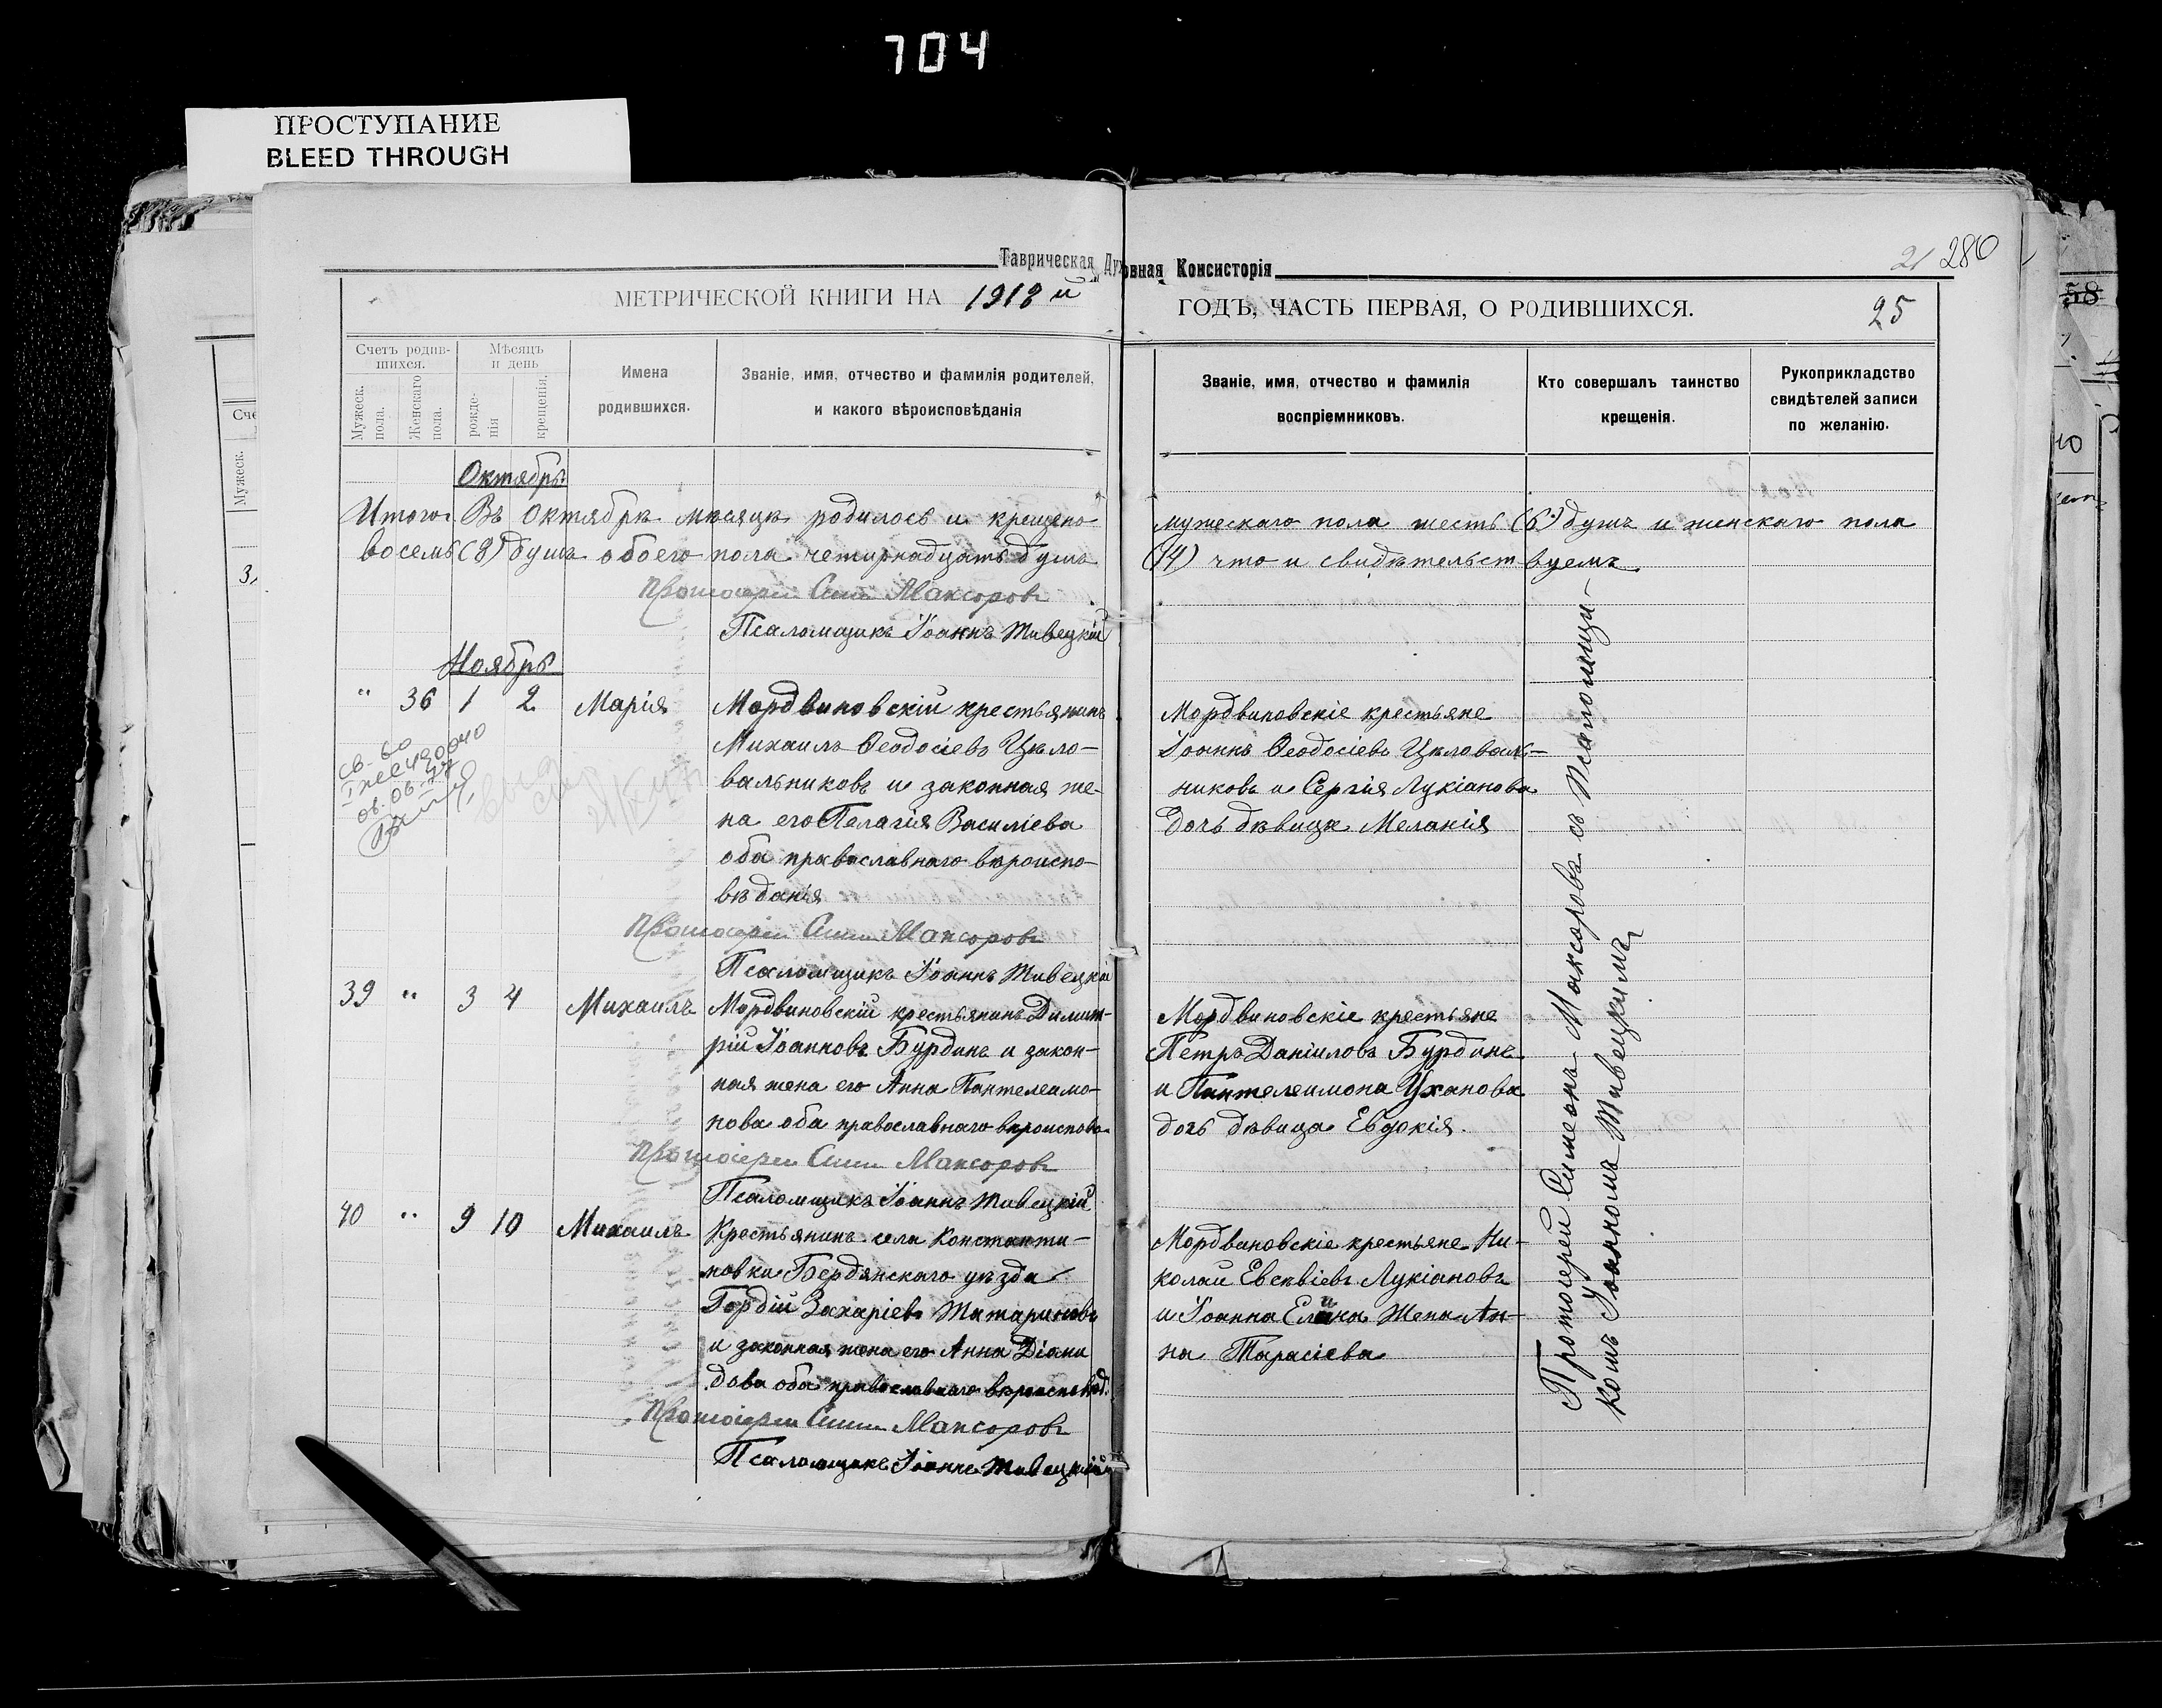 704
ПРОСТУПАНИЕ
BLEED THROUGH
Таврическая Духовная Консисторія
280
МЕТРИЧЕСКОЙ КНИГИ НА 1918 й
ГОДЪ, ЧАСТЬ ПЕРВАЯ, О РОДИВШИХСЯ.
25
Счетъ родив-
шихся.
Мужеск.
пола.
Женскаго
пола.
Мѣсяцъ
и день
рожде-
нія
крещенія.
Имена
родившихся.
Званіе, имя, отчество и фамилія родителей,
и какого вѣроисповѣданія
Званіе, имя, отчество и фамилія
воспріемниковъ.
Кто совершалъ таинство
крещенія.
Рукоприкладство
свидѣтелей записи
по желанію.
Октябрь
Итого Въ Октябрѣ мѣсяцѣ родилось и крещено мужескаго пола шесть (6) душъ и женскаго пола
восемь (8) душъ обоего пола четырнадцать душъ (14) что и свидѣтельствуемъ
Протоіерей Симеонъ Максоровъ
Псаломщикъ Іоаннъ Живецкій
Ноябрь
" 36 1 2 Марія
Мордвиновскій крестьянинъ
Михаилъ Ѳеодосіевъ Цѣло-
вальниковъ и законная же-
на его Пелагія Василіева
оба православнаго вѣроиспо-
вѣданія
Протоіерей Симеонъ Максоровъ
Псаломщикъ Іоаннъ Живецкій
Мордвиновскіе крестьяне
Іоаннъ Ѳеодосіевъ Цѣловаль-
никовъ и Сергія Лукіанова
дочь дѣвица Меланія
39 " 3 4 Михаилъ
Мордвиновскій крестьянинъ Димит-
рій Іоанновъ Бурдинъ и закон-
ная жена его Анна Пантелеимо-
нова оба православнаго вѣроисповѣ
Протоіерей Симеонъ Максоровъ
Псаломщикъ Іоаннъ Живецкій
Мордвиновскіе крестьяне
Петръ Даніиловъ Бурдинъ
и Пантелеимона Уханова
дочь дѣвица Евдокія.
40 " 9 10 Михаилъ
Крестьянинъ села Константи-
новки Бердянскаго уѣзда
Гордій Захаріевъ Татариновъ
и законная жена его Анна
дова оба православнаго вѣроисповѣд.
Протоіерей Симеонъ Максоровъ
Псаломщикъ Іоаннъ Живецкій
Мордвиновскіе крестьяне Ни-
колай Лукіановъ
и Іоанна жена Ан-
на Тарасіева
Протоіерей Симеонъ Максоровъ съ Псаломщи-
комъ Іоанномъ Живецкимъ